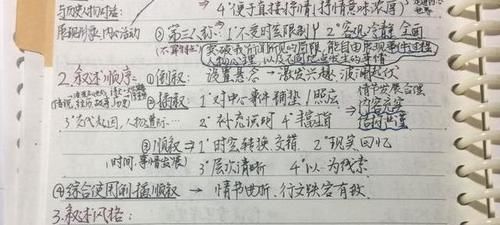 与历史人物对话:
→ 4°便于直接抒情(抒情意味浓厚)
展现形象、内心活动
③第三人称: 1°不受时空限制 2°客观冷静 全面
突破 所见所闻的局限,能自由展现事件过程
人物心理,以及不同地点发生的事情
2.叙述顺序: ①倒叙: 设置悬念 → 激发兴趣 波澜起伏
②插叙: 1°对中心事件铺垫/照应
情节发展合理
内容充实
结构严谨
3°交代起因,人物
2°补充说明 4°丰富
③顺叙 → 1°时空转换 交错 2°现实回忆
(时间、事情发展)
3°层次清晰 4°以 为线索
④综合使用 插顺叙 → 情节曲折、行文跌宕有致.
3.叙述风格: